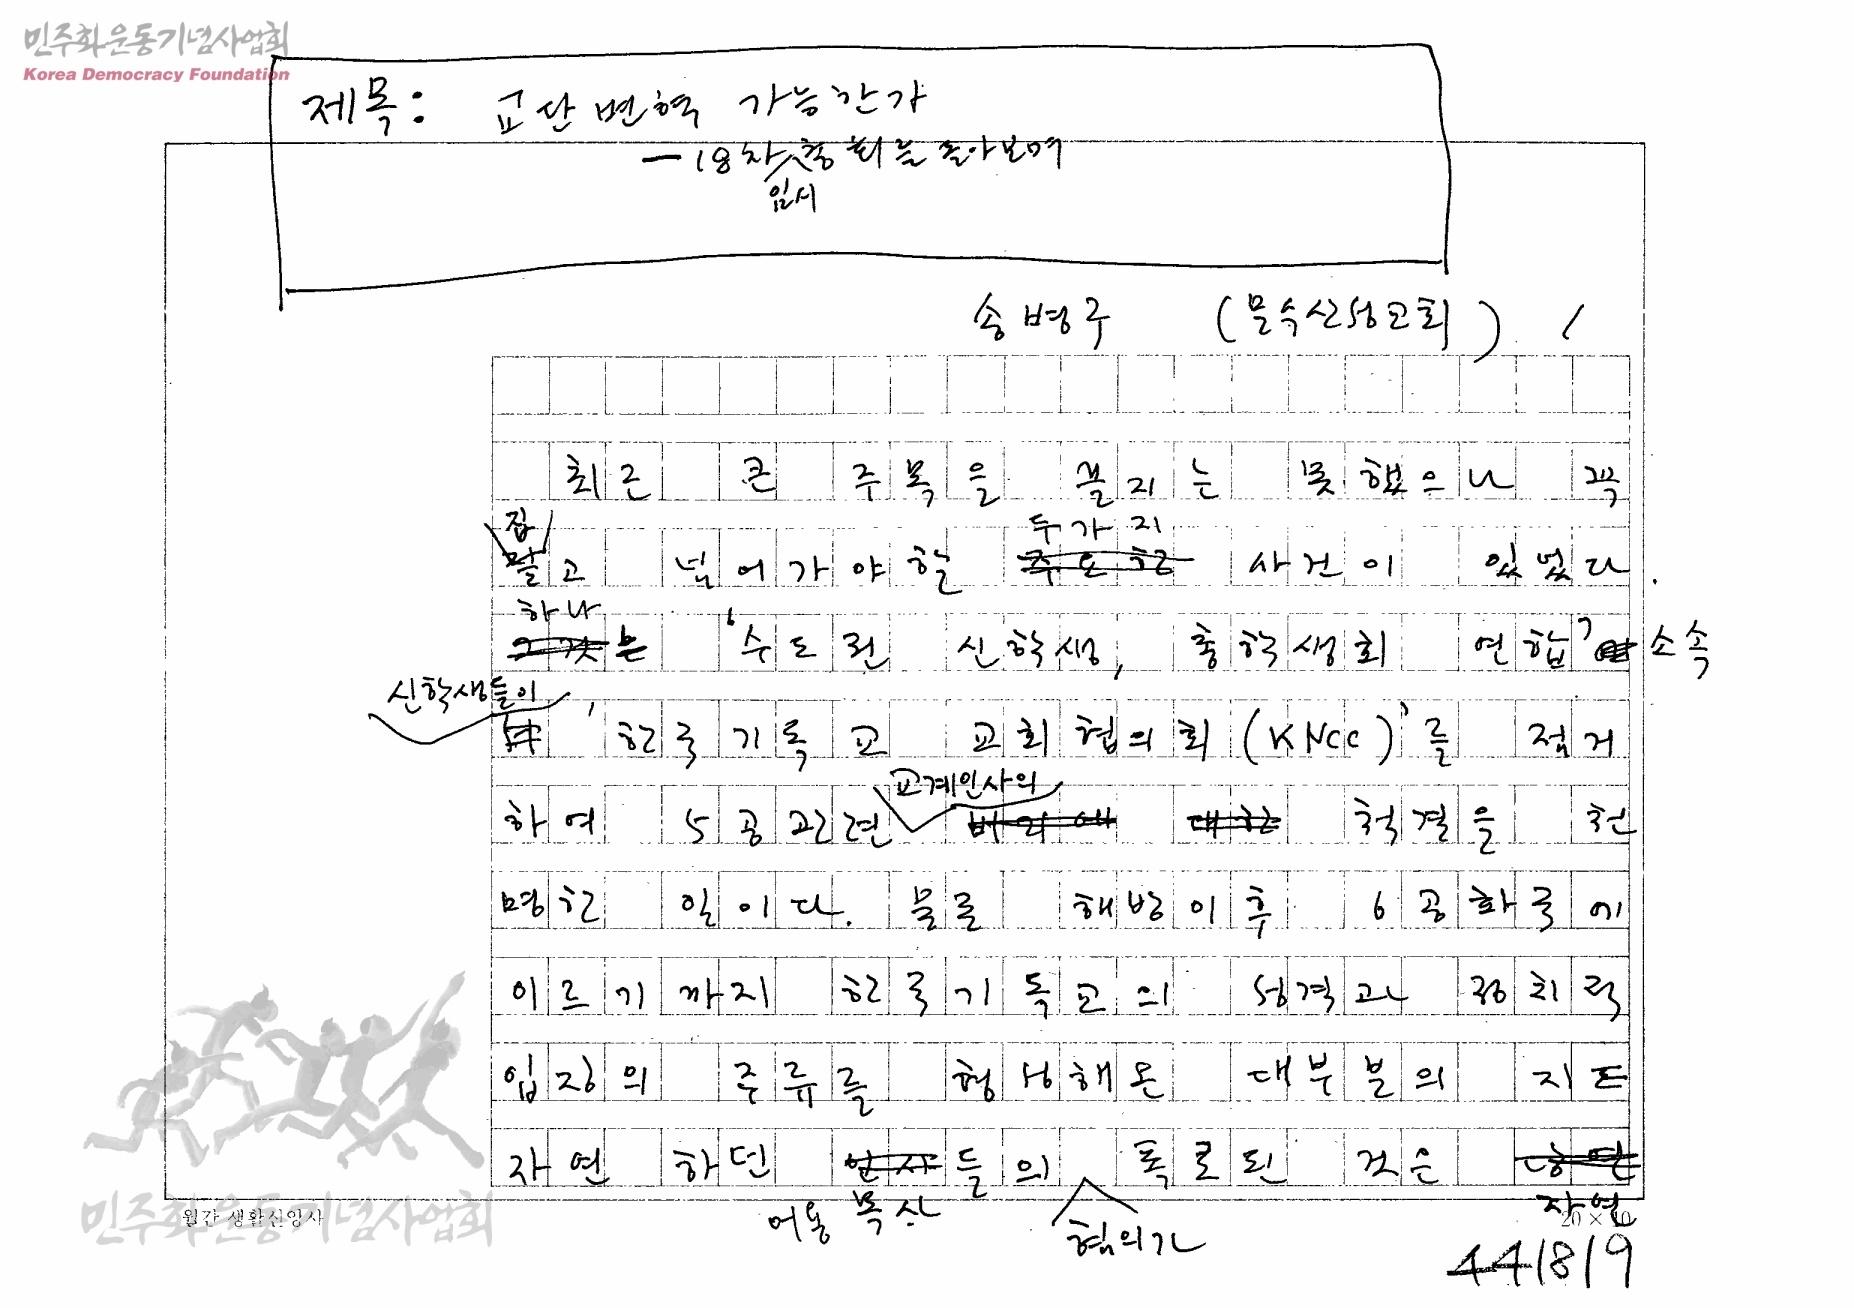 민주화운동기념사업회
Korea Democracy Foundation
제목: 교단변혁 가능한가
— 18차 총회를 돌아보며
임시
송병구 (문수산성교회) 1
최근 큰 주목을 끌지는 못했으나 꼭
집
말고 넘어가야할 주요한 사건이 있었다.
두가지
하나
그것은 '수도권 신학생, 총학생회 연합' 소속
신학생들이
'한국기독교 교회협의회(KNCC)'를 점거
교계인사의
하여 5공관련 비리에 대한 척결을 천
명한 일이다. 물론 해방이후 6공화국에
이르기까지 한국기독교의 성격과 정치적
입장의 주류를 형성해온 대부분의 지도
자연 하던 인사들의 폭로된 것은 당연
어용 목사
혐의가
자연
월간 생활신앙사
20 × 10
민주화운동기념사업회
441819